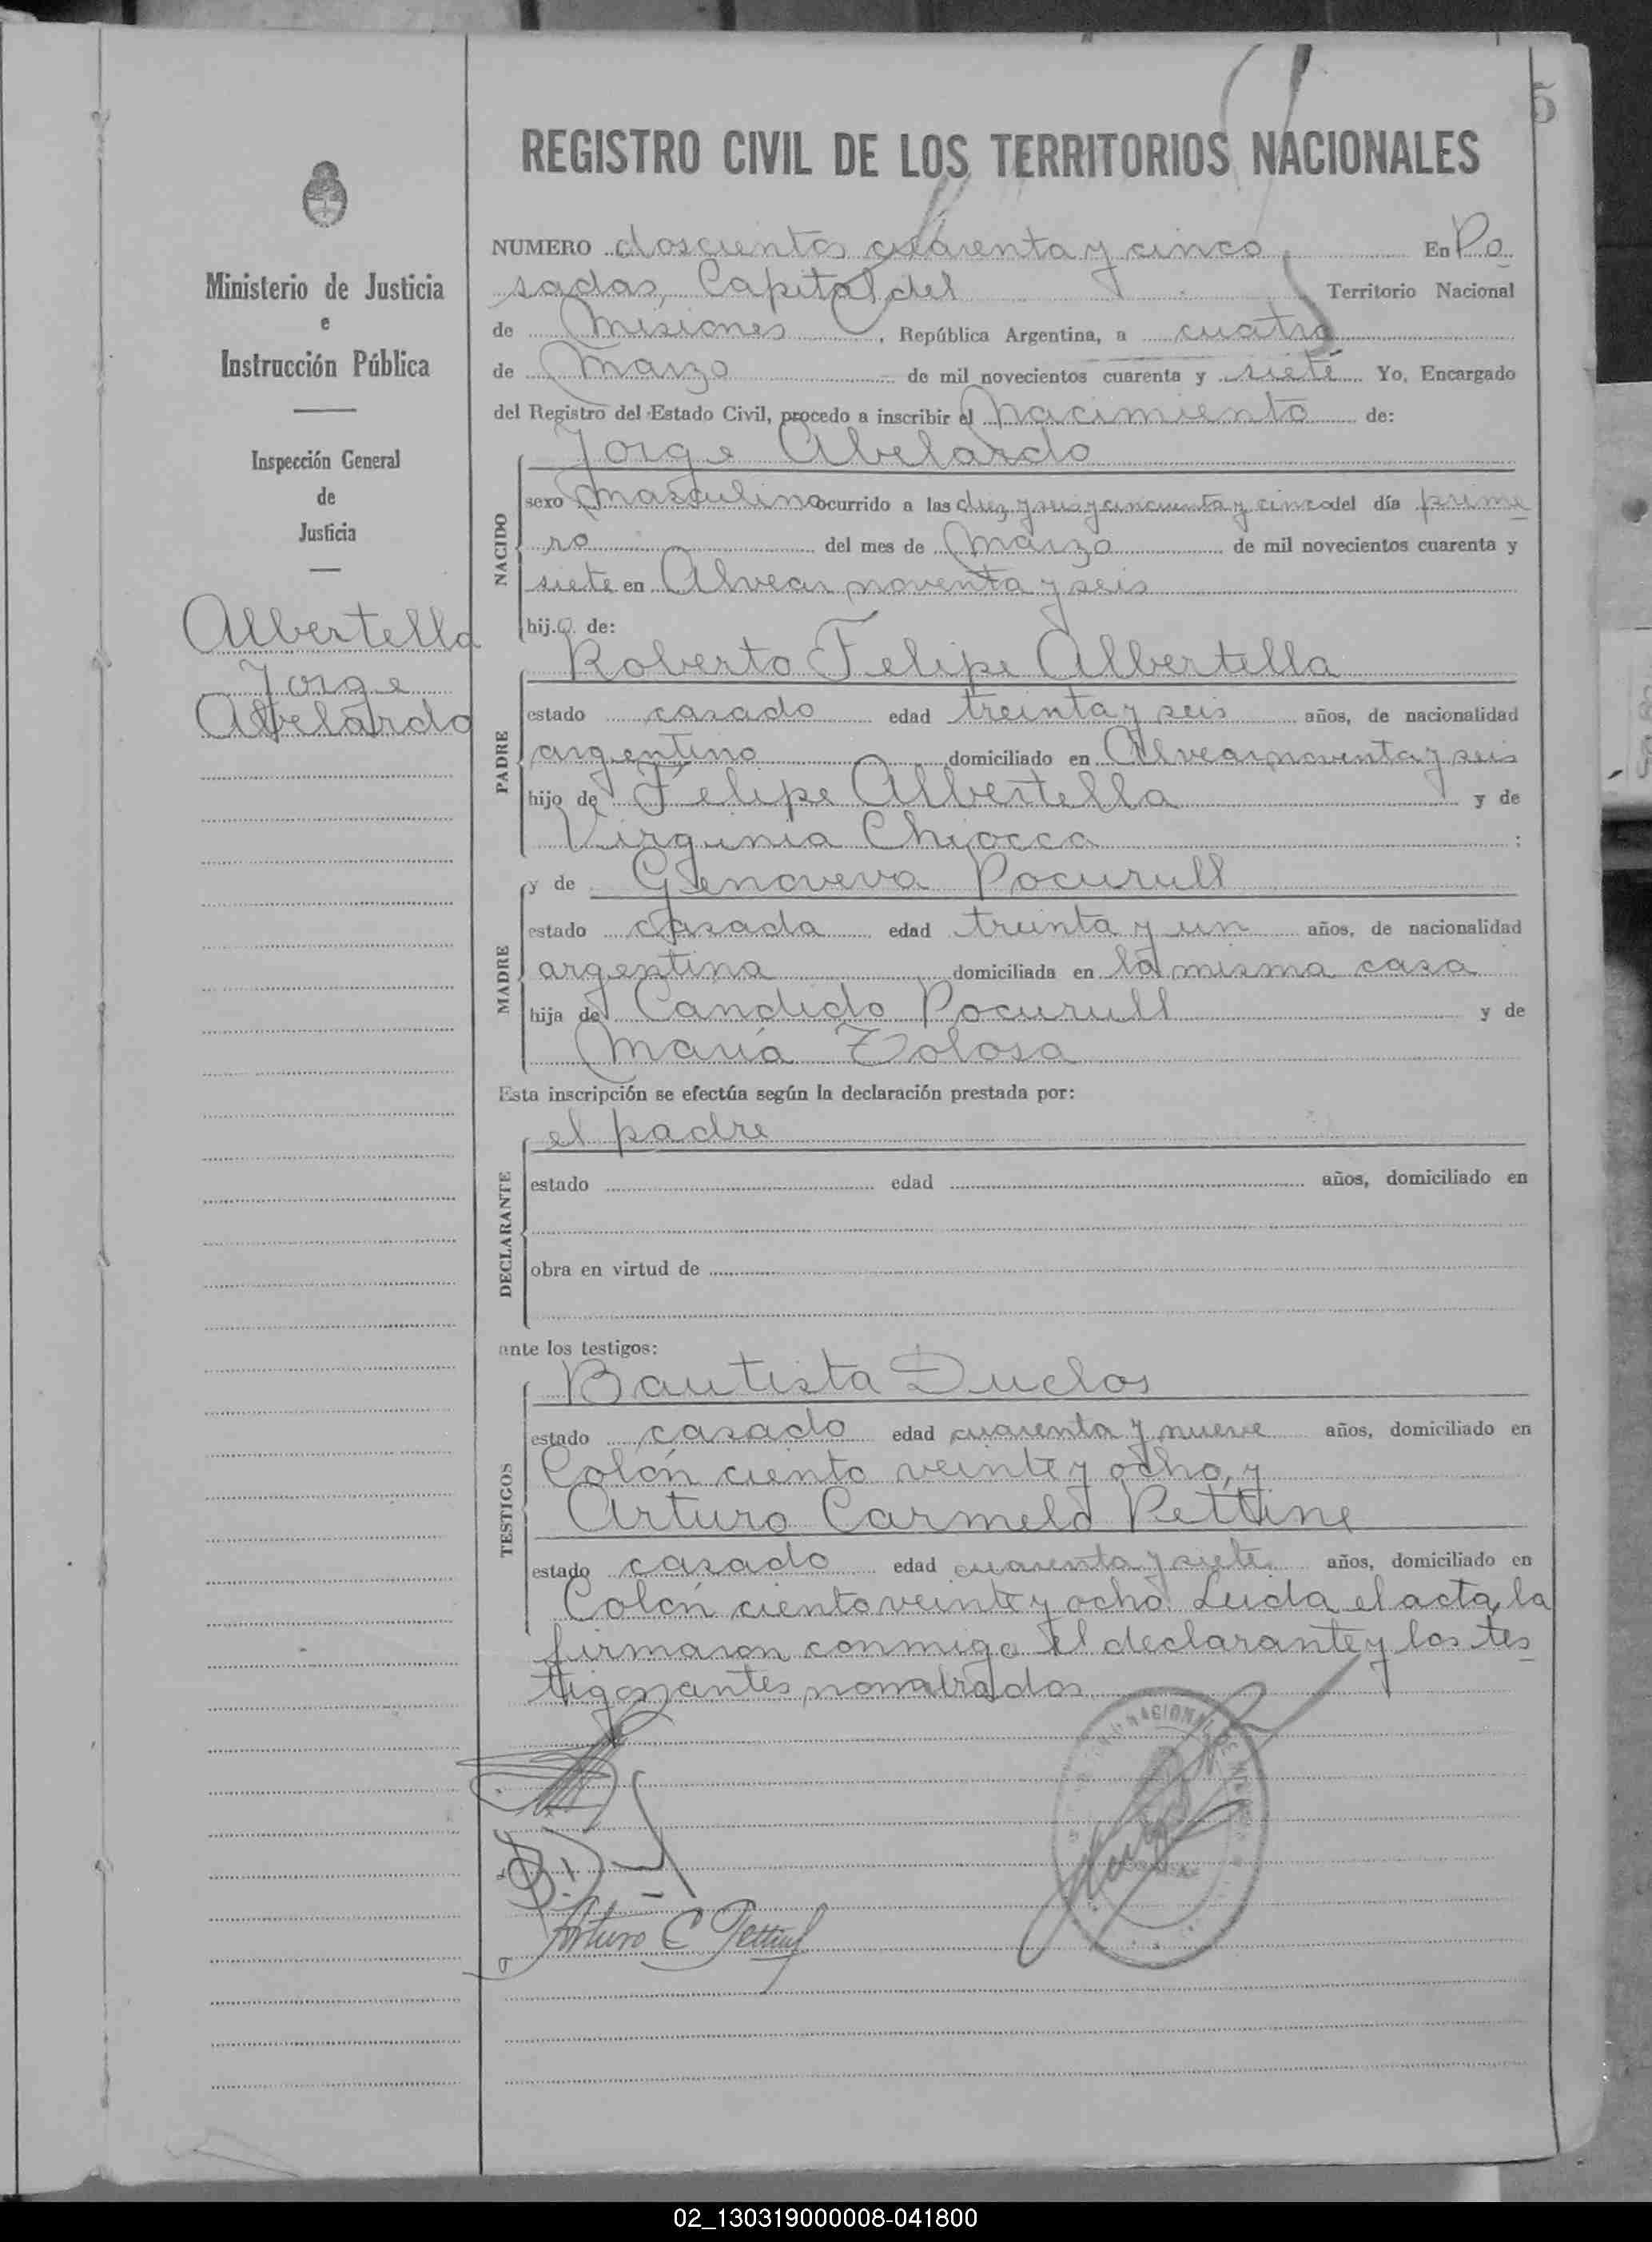 5
REGISTRO CIVIL DE LOS TERRITORIOS NACIONALES
Ministerio de Justicia
e
Instrucción Pública
Inspección General
de
Justicia
Albertella
Jorge
Abelardo
NUMERO doscientos cuarenta y cinco En Po
sadas, Capital del Territorio Nacional
de Misiones, República Argentina, a cuatro
de Marzo de mil novecientos cuarenta y siete Yo, Encargado
del Registro del Estado Civil, procedo a inscribir el nacimiento de:
Jorge Abelardo
NACIDO
sexo masculino ocurrido a las diez y seis y cincuenta y cinco del día prime
ro del mes de Marzo de mil novecientos cuarenta y
siete en Alvear noventa y seis
hij.o de:
Roberto Felipe Albertella
PADRE
estado casado edad treinta y seis años, de nacionalidad
argentino domiciliado en Alvear noventa y seis
hijo de Felipe Albertella y de
Virginia Chiocca ;
y de Genoveva Pocurull
MADRE
estado casada edad treinta y un años, de nacionalidad
argentina domiciliada en la misma casa
hija de Cándido Pocurull y de
María Tolosa
Esta inscripción se efectúa según la declaración prestada por:
el padre
DECLARANTE
estado edad años, domiciliado en
obra en virtud de
ante los testigos:
Bautista Duclos
TESTIGOS
estado casado edad cuarenta y nueve años, domiciliado en
Colón ciento veinte y ocho, y
Arturo Carmelo Pettine
estado casado edad cuarenta y siete años, domiciliado en
Colón ciento veinte y ocho. Leida el acta, la
firmaron conmigo el declarante y los tes
tigos antes nombrados
NACIONAL DE
Arturo C Pettine
02_130319000008-041800